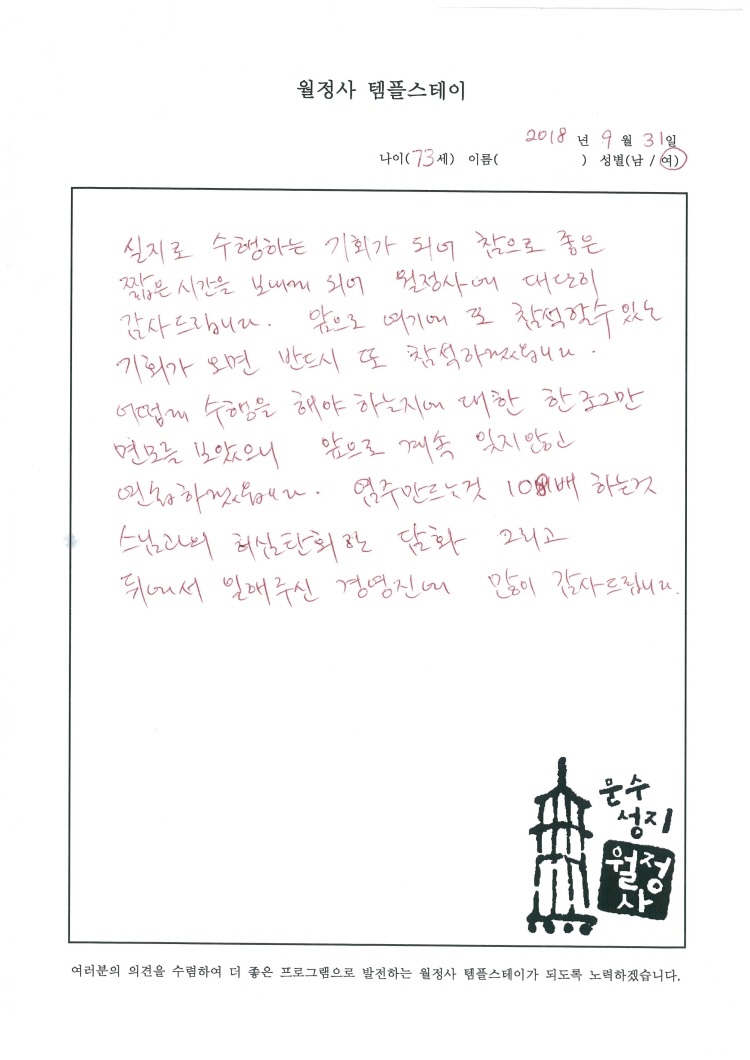 월정사 템플스테이
2018 년 9 월 31일
나이(73세) 이름( ) 성별(남 / 여)
실지로 수행하는 기회가 되어 참으로 좋은
짧은 시간을 보내게 되어 월정사에 대단히
감사드립니다. 앞으로 여기에 또 참석할수 있는
기회가 오면 반드시 또 참석하겠읍니다.
어떻게 수행을 해야 하는지에 대한 한 조그만
면모를 보았으니 앞으로 계속 잊지않고
연습하겠읍니다. 염주만드는것 108배 하는것
스님과의 허심탄회한 담화 그리고
뒤에서 일해주신 경영진에 많이 감사드립니다.
문수
성지
월정
사
여러분의 의견을 수렴하여 더 좋은 프로그램으로 발전하는 월정사 템플스테이가 되도록 노력하겠습니다.